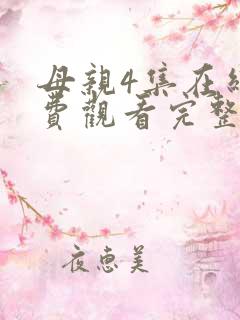 母親4集在
費觀看完整
夜恵美